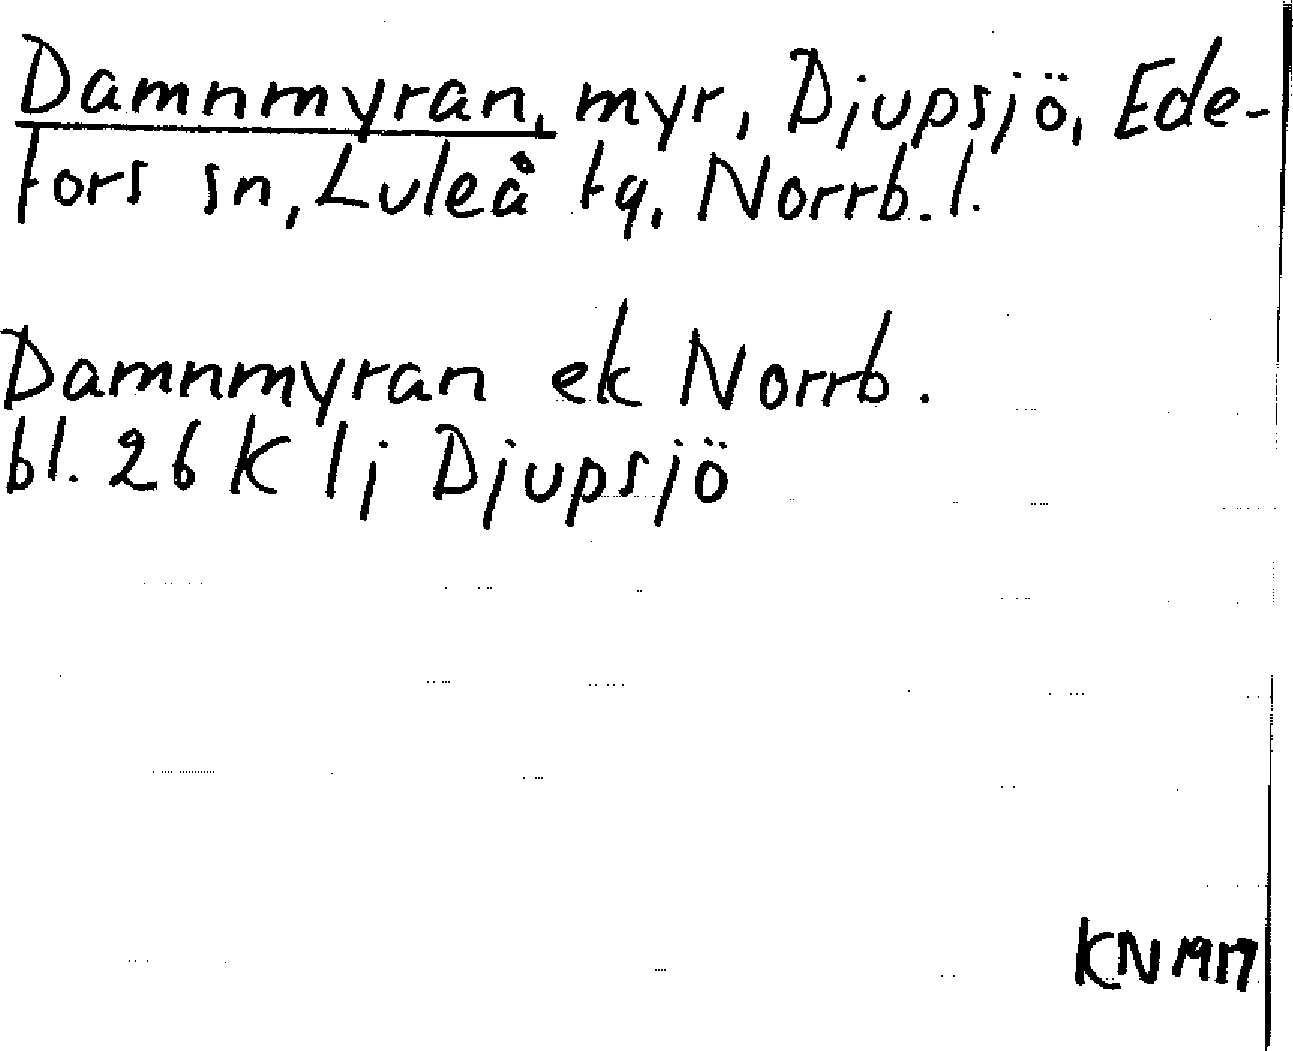 Damnmyran, myr, Djupsjö, Ede-
fors sn, Luleå tg, Norrb. l.
Damnmyran ek Norrb.
bl. 26 K lj Djupsjö
KN